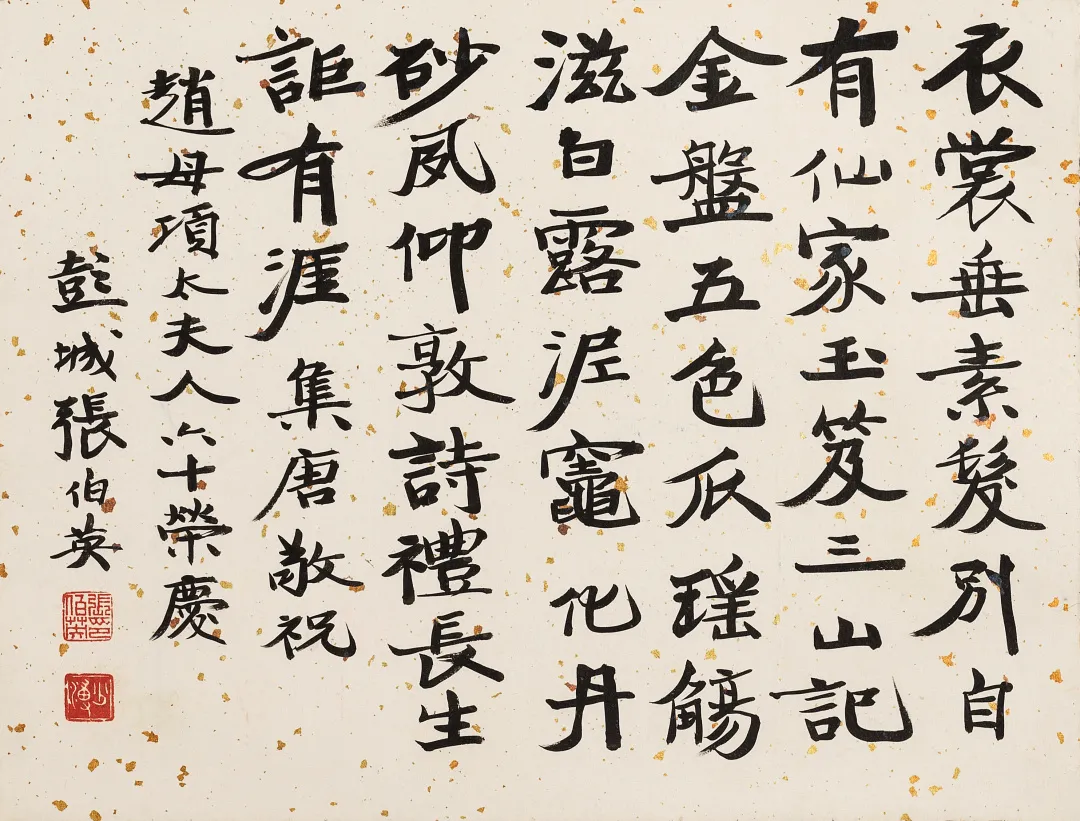 衣裳垂素髮別自
有仙家玉笈三山記
金盤五色瓜瑶觴
滋白露泥竈化丹
砂夙仰敦詩禮長生
詎有涯 集唐敬祝
趙母項太夫人六十榮慶
彭城張伯英
張印伯英
少溥